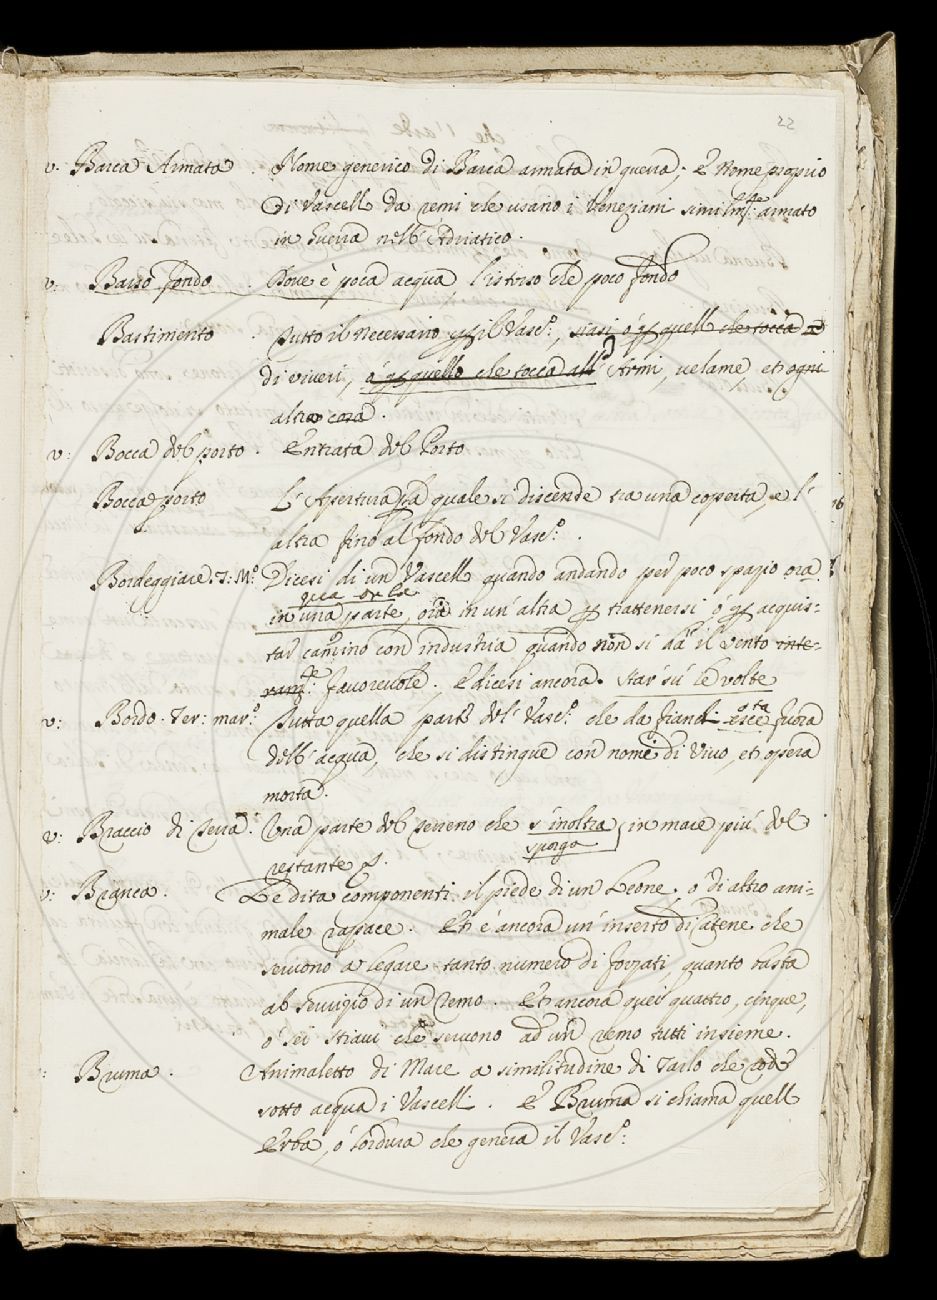 22
v: Barca Armata . Nome generico di Barca armata in guerra; è Nome proprio
di Vascell da remi che usano i Veneziani similm:te armato
in Guerra nell' Adriatico.
v: Basso fondo . Dove è poca acqua l'istesso che poco fondo
Bastimento . Tutto il necessario il Vasc:o, siasi ó quell che tocca
di viveri, ó quello che tocca all' Armi, velame, et ogni
altra cosa.
v: Bocca del porto . Entrata del Porto
Bocca porto L' Apertura quale si discende tra una coperta, e l'
altra fino al fondo del Vasc:o .
Bordeggiare. T: M:o Dicesi di un Vascell quando andando per poco spazio ora
qua or la
in una parte, ora in un' altra trattenersi ó acquis=
tar camino con industria quando non si dà il vento inte=
ram:te favorevole. E dicesi ancora. Star sù le volte
v: Bordo. Ter: mar:o Tutta quella parte del' Vasc:o che da fianchi esce fuora
dell' acqua, che si distingue con nome di Vivo, et opera
morta.
v: Braccio di Terra. Una parte del terreno che s'inoltra in mare più del
sporga
restante
v: Branca. Le dita componenti il piede di un Leone, o di altro ani=
male rapace. Et è ancora un' inserto di Catene che
servono a legare tanto numero di forzati quanto basta
al servizio di un remo. Et ancora quei quattro, cinque,
o sei Stiavi che servono ad un remo tutti insieme.
Bruma. Animaletto di Mare a similitudine di Tarlo che rode
sotto acqua i Vascelli. E Bruma si chiama quell
Erba, ó lordura che genera il Vasc:o